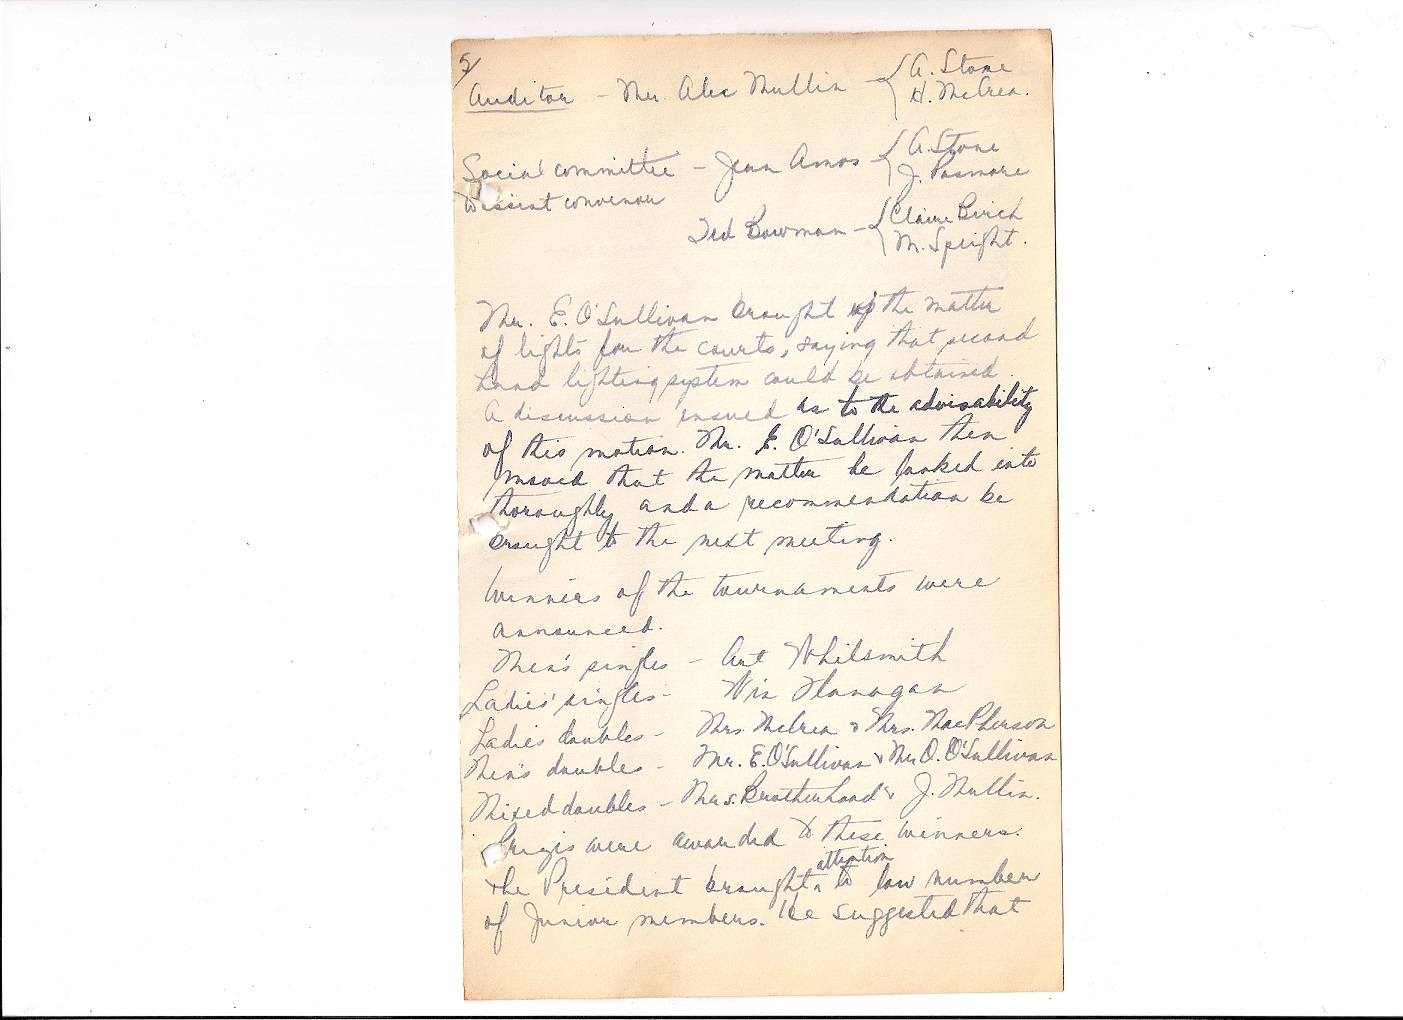 5/
Auditor - Mr. Alec Mullin - { A. Stone
H. McCrea.
Social committee - Jean Amos - { A. Stone
J. Pasmore
to assist convenor
Ted Bowman - { Claire Birch
M. Speight.
Mr. E. O'Sullivan brought up the matter
of lights for the courts, saying that second
hand lighting system could be obtained.
A discussion ensued as to the advisability
of this motion. Mr. E. O'Sullivan then
moved that the matter be looked into
thoroughly and a recommendation be
brought to the next meeting.
Winners of the tournaments were
announced.
Men's singles - Art Whilsmith
Ladies' singles - Win Flanagan
Ladies doubles - Mrs. McCrea & Mrs. MacPherson
Men's doubles - Mr. E. O'Sullivan & Mr. O. O'Sullivan
Mixed doubles - Mrs. Brotherhood & J. Mullin.
Prizes were awarded to these winners.
The President brought attention to low number
of Junior members. He suggested that